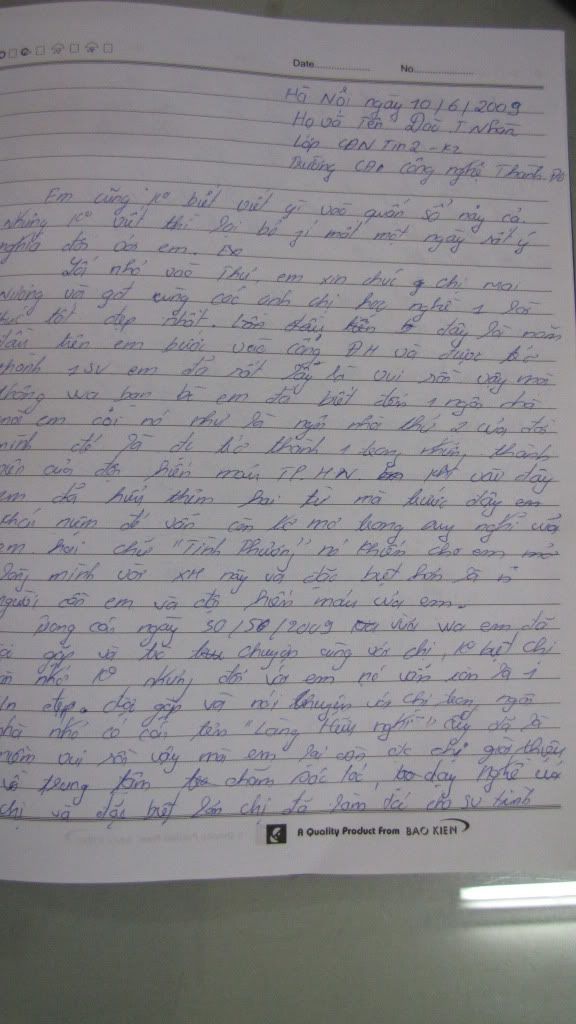 Date............... No...............
Hà Nội ngày 10/6/2009
Họ và Tên Đào T Nhàn
Lớp CĐN Tin 2 - K2
Trường CĐN công nghệ Thành Đô
Em cũng k° biết viết gì vào quấn sổ này cả.
Nhưng k° viết thì lại bỏ gí mất một ngày rất ý
nghĩa đối với em.
Lá nhớ vào Thư, em xin chúc chị mai
và cùng các anh chị học nghề 1 lời
tốt đẹp nhất. đây là năm
đầu tiên em bước vào cổng ĐH và được trở
thành 1 SV em đã rất lấy là vui rồi vậy mà
thông wa bạn bè em đã biết đến 1 ngôi nhà
mà em coi nó như là ngôi nhà thứ 2 của đời
mình đó là đc trở thành 1 trong những thành
viên của đội hiến máu TP.HN. vào đây
em đã hiểu thêm hai từ mà trước đây em
khái niệm đó vẫn còn lờ mờ trong suy nghĩ của
em hai chữ "Tình Thương" nó khiến cho em mở
lòng mình với XH này và đặc biệt hơn là n
người cần em và đội hiến máu của em.
Trong cái ngày 30/5/2009 vừa wa em đã
gặp và trò chuyện cùng với chị, k° biết chị
còn nhớ k° nhưng đối với em nó vẫn còn là 1
đẹp. đc gặp và nói chuyện với chị trong ngôi
nhà nhỏ có cái tên "Làng Hữu nghị" ấy đã là
niềm vui rồi vậy mà em lại còn đc chị giới thiệu
về trung tâm chăm sóc tóc, dạy nghề của
chị và đặc biệt lần chị đã làm tóc cho sv tình
A Quality Product From BAO KIEN